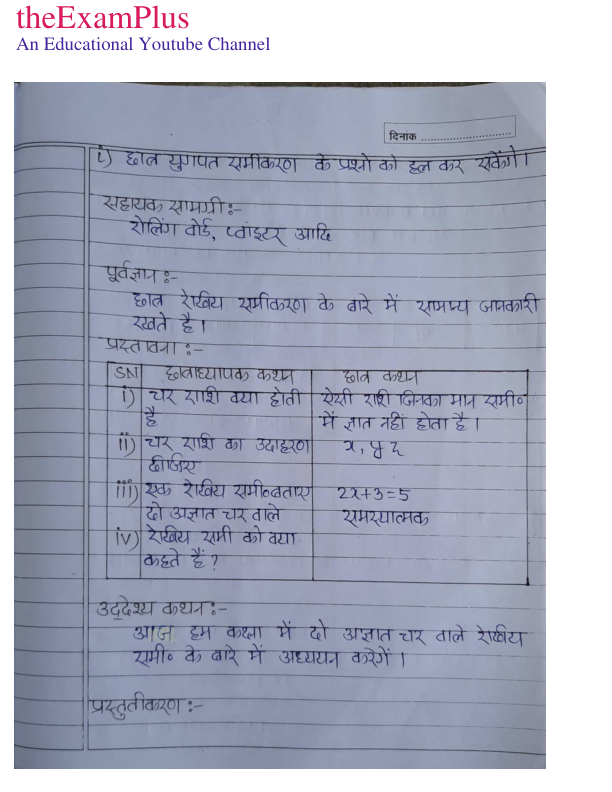 theExamPlus
An Educational Youtube Channel
दिनांक
i) छात्र युगपत समीकरण के प्रश्नों को हल कर सकेंगे।
सहायक सामग्री :-
रोलिंग बोर्ड, प्वांइटर आदि
पूर्वज्ञान :-
छात्र रेखिय समीकरण के बारे में सामन्य जानकारी
रखते है।
प्रस्तावना :-
SN छात्राध्यापक कथन छात्र कथन
i) चर राशि क्या होती ऐसी राशि जिनका मान समी०
है में ज्ञात नहीं होता है।
ii) चर राशि का उदाहरण x, y z
दीजिए
iii) एक रेखिय समी०बताए 2x+3=5
दो अज्ञात चर वाले समस्यात्मक
iv) रेखिय समी को क्या
कहते हैं ?
उद्देश्य कथन :-
आज हम कक्षा में दो अज्ञात चर वाले रेखीय
समी० के बारे में अध्ययन करेगें।
प्रस्तुतीकरण :-